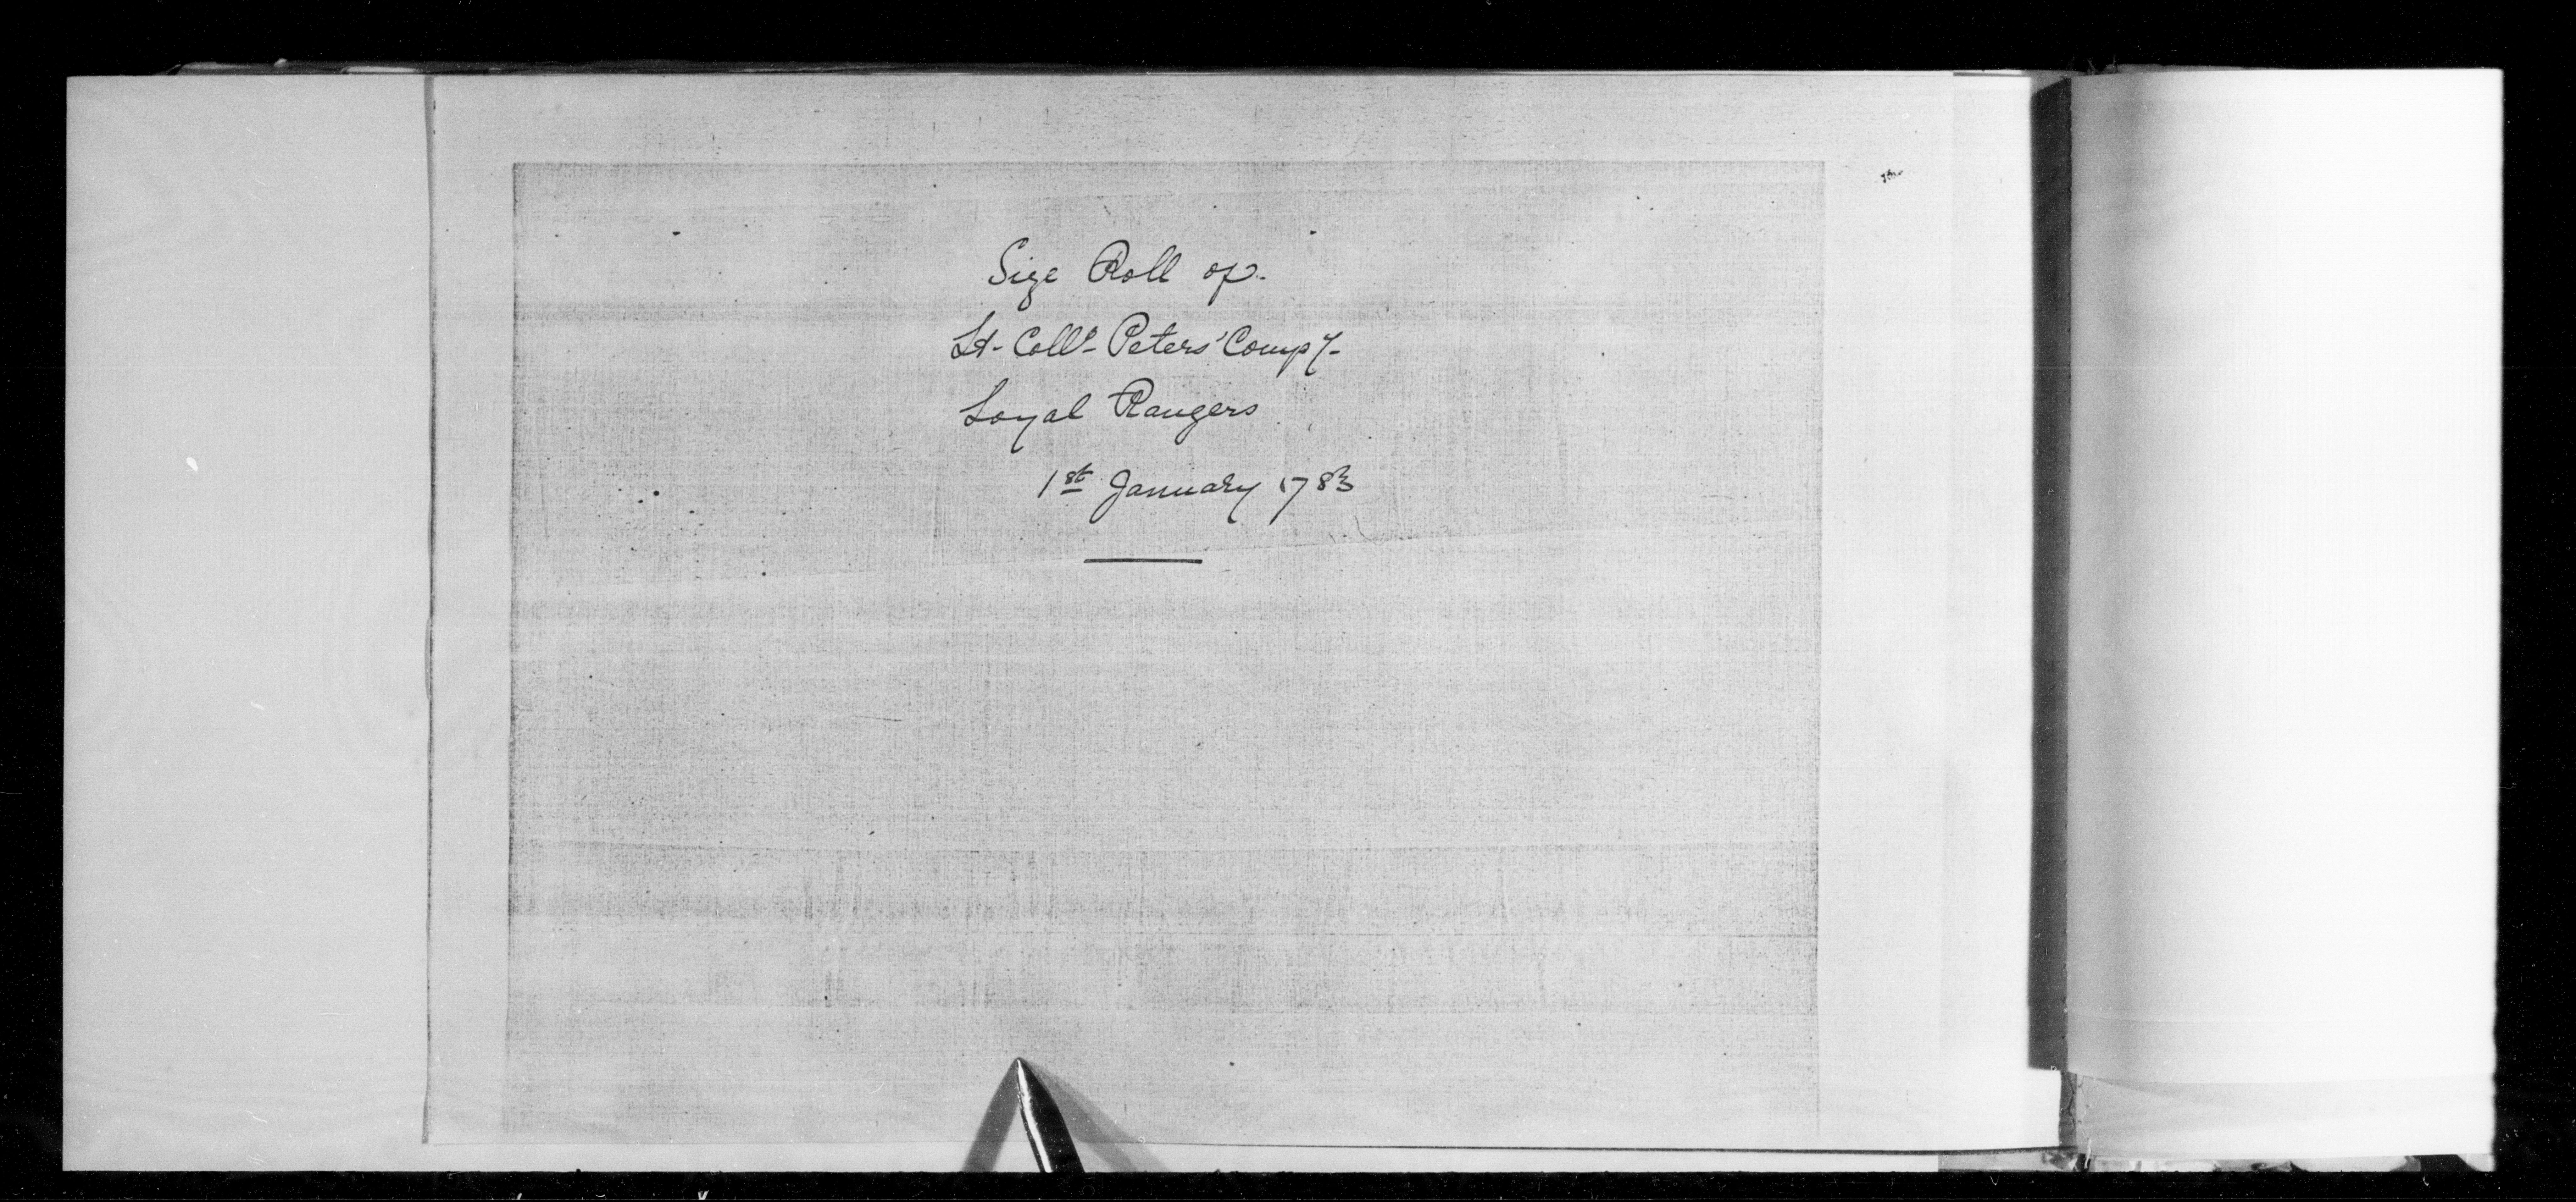 Size Roll of
Lt. Coll's Peters' Compy.
Loyal Rangers
1st January 1783